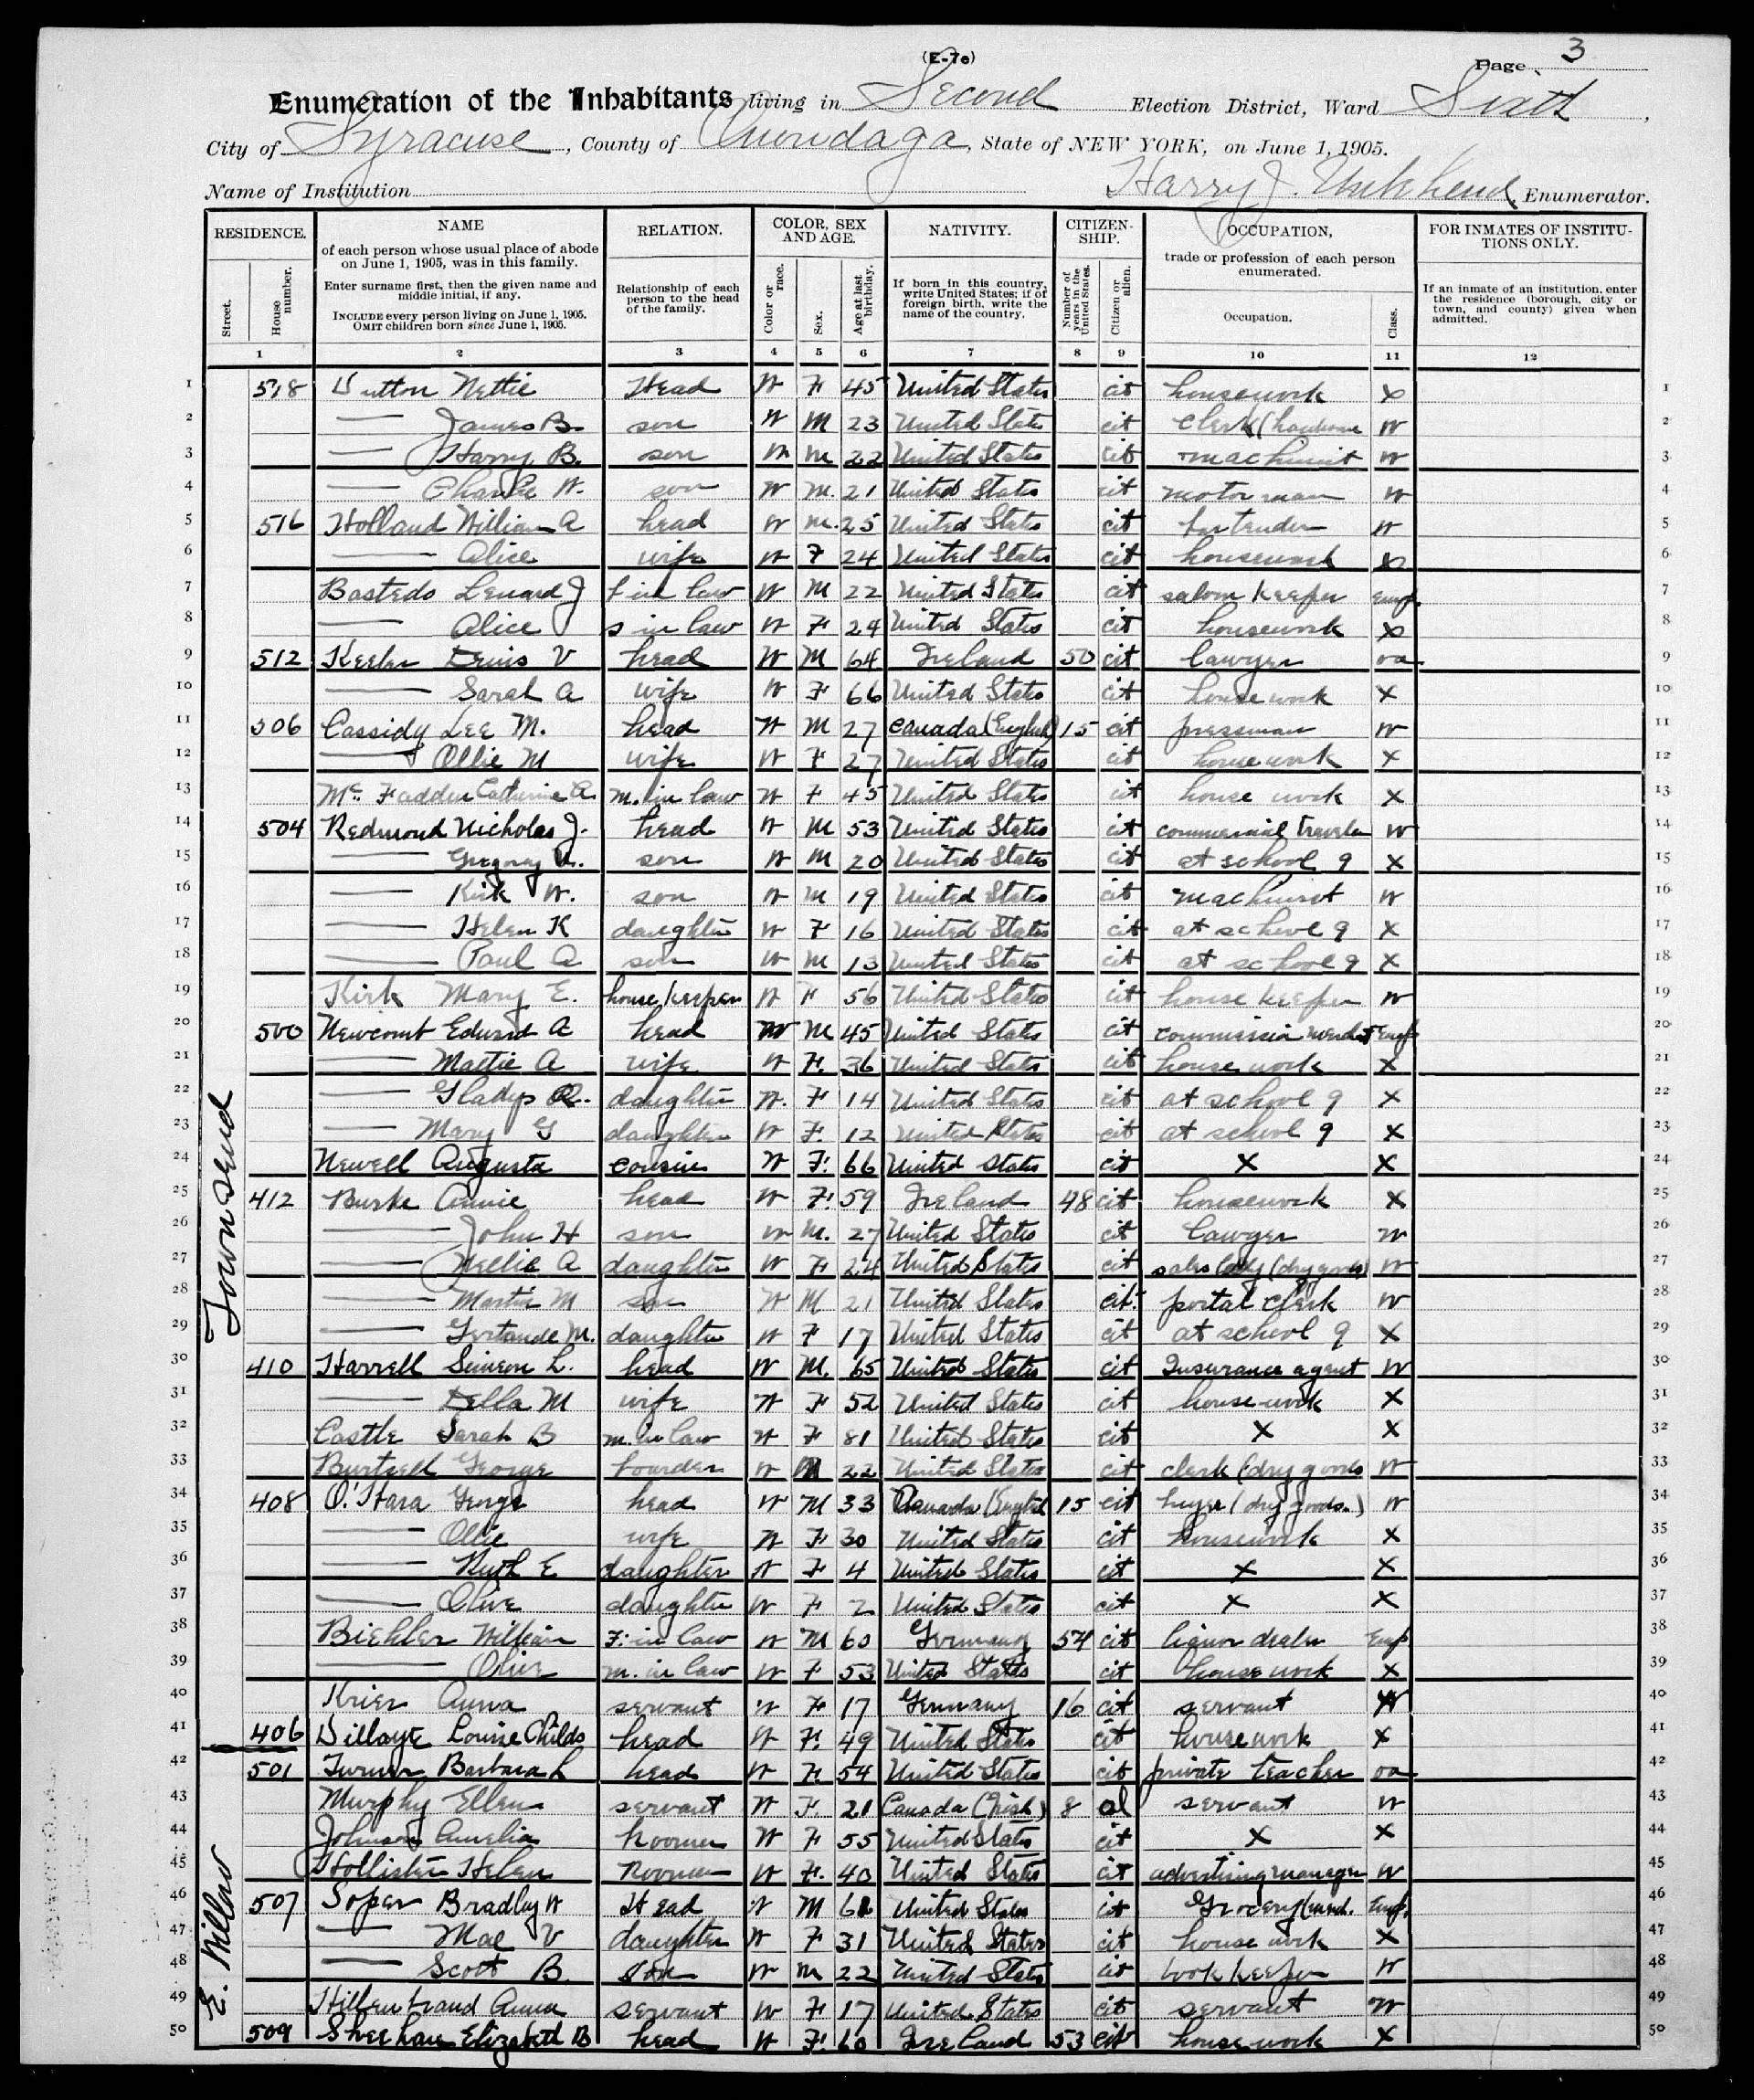 (E-7e)
Page 3
Enumeration of the Inhabitants living in Second Election District, Ward Sixth,
City of Syracuse, County of Onondaga, State of NEW YORK, on June 1, 1905.
Name of Institution Harry J. Enumerator.
RESIDENCE. NAME RELATION. COLOR, SEX AND AGE. NATIVITY. CITIZEN-SHIP. OCCUPATION, FOR INMATES OF INSTITU-TIONS ONLY.
Street. House number. of each person whose usual place of abode on June 1, 1905, was in this family. Enter surname first, then the given name and middle initial, if any. INCLUDE every person living on June 1, 1905. OMIT children born since June 1, 1905. Relationship of each person to the head of the family. Color or race. Sex. Age at last birthday. If born in this country, write United States; if of foreign birth, write the name of the country. Number of years in the United States. Citizen or alien. trade or profession of each person enumerated. Occupation. Class. If an inmate of an institution, enter the residence (borough, city or town, and county) given when admitted.
1 2 3 4 5 6 7 8 9 10 11 12
Townsend
1 518 Dutton Nettie Head W F 45 United States cit housework x 1
2 — James B. son W M 23 United States cit clerk (hardware W 2
3 — Harry B. son W M 22 United States cit machinist W 3
4 — Charlie W. son W M. 21 United States cit motorman W 4
5 516 Holland William A head W M. 25 United States cit bartender W 5
6 — Alice wife W F 24 United States cit housework x 6
7 Bastedo Lenard J in law W M 22 United States cit saloon keeper Emp. 7
8 — Alice s in law W F 24 United States cit housework x 8
9 512 Keeler Denis V head W M 64 Ireland 50 cit lawyer oa 9
10 — Sarah A wife W F 66 United States cit house work x 10
11 506 Cassidy Lee M. head W M 27 Canada (English) 15 cit pressman W 11
12 — Ollie M wife W F 27 United States cit house work x 12
13 Mc. Fadden Catherine A. m. in law W F 45 United States cit house work x 13
14 504 Redmond Nicholas J. head W M 53 United States cit commercial traveler W 14
15 — Gregory son W M 20 United States cit at school 9 x 15
16 — Kirk W. son W M 19 United States cit machinist W 16
17 — Helen K daughter W F 16 United States cit at school 9 x 17
18 — Paul A son W M 13 United States cit at school 9 x 18
19 Kirk Mary E. house keeper W F 56 United States cit house keeper W 19
20 500 Newcomb Edward A head W M 45 United States cit commission merchant Emp 20
21 — Mattie A wife W F. 36 United States cit house work x 21
22 — Gladys daughter W. F 14 United States cit at school 9 x 22
23 — Mary G daughter W F. 12 United States cit at school 9 x 23
24 Newell Augusta cousin W F. 66 United States cit x x 24
25 412 Burke Annie head W F. 59 Ireland 48 cit housework x 25
26 — John H son W M. 27 United States cit lawyer W 26
27 — Nellie A daughter W F 24 United States cit sales lady (dry goods) W 27
28 — Martin M son W M 21 United States cit. postal clerk W 28
29 — Gertrude M. daughter W F 17 United States cit at school 9 x 29
30 410 Harrell Simeon L. head W M. 65 United States cit Insurance agent W 30
31 — Della M wife W F 52 United States cit house work x 31
32 Castle Sarah B m. in law W F 81 United States cit x x 32
33 George boarder W M 22 United States cit clerk (dry goods W 33
34 408 O'Hara George head W M 33 Canada (English 15 cit buyer (dry goods.) W 34
35 — Ollie wife W F 30 United States cit housework x 35
36 — Ruth E daughter W F 4 United States cit x x 36
37 — Olive daughter W F 2 United States cit x x 37
38 Biehler William F. in law W M 60 Germany 54 cit liquor dealer Emp 38
39 — Olive m. in law W F 53 United States cit house work x 39
40 Krier Anna servant W F 17 Germany 16 cit servant W 40
41 406 Dillaye Louise Childs head W F. 49 United States cit housework x 41
E. Willow
42 501 Turner Barbara L head W F. 54 United States cit private teacher oa 42
43 Murphy Ellen servant W F. 21 Canada (Irish) 8 al servant W 43
44 Johnson Amelia Roomer W F 55 United States cit x x 44
45 Hollister Helen Roomer W F. 40 United States cit advertising manager W 45
46 507 Soper Bradley W Head W M 61 United States cit Grocery (merch. Emp. 46
47 — Mae V daughter W F 31 United States cit house work x 47
48 — Scott B. son W M 22 United States cit book keeper W 48
49 Hillenbrand Anna servant W F 17 United States cit servant W 49
50 509 Sheehan Elizabeth B head W F. 60 Ireland 53 cit house work x 50